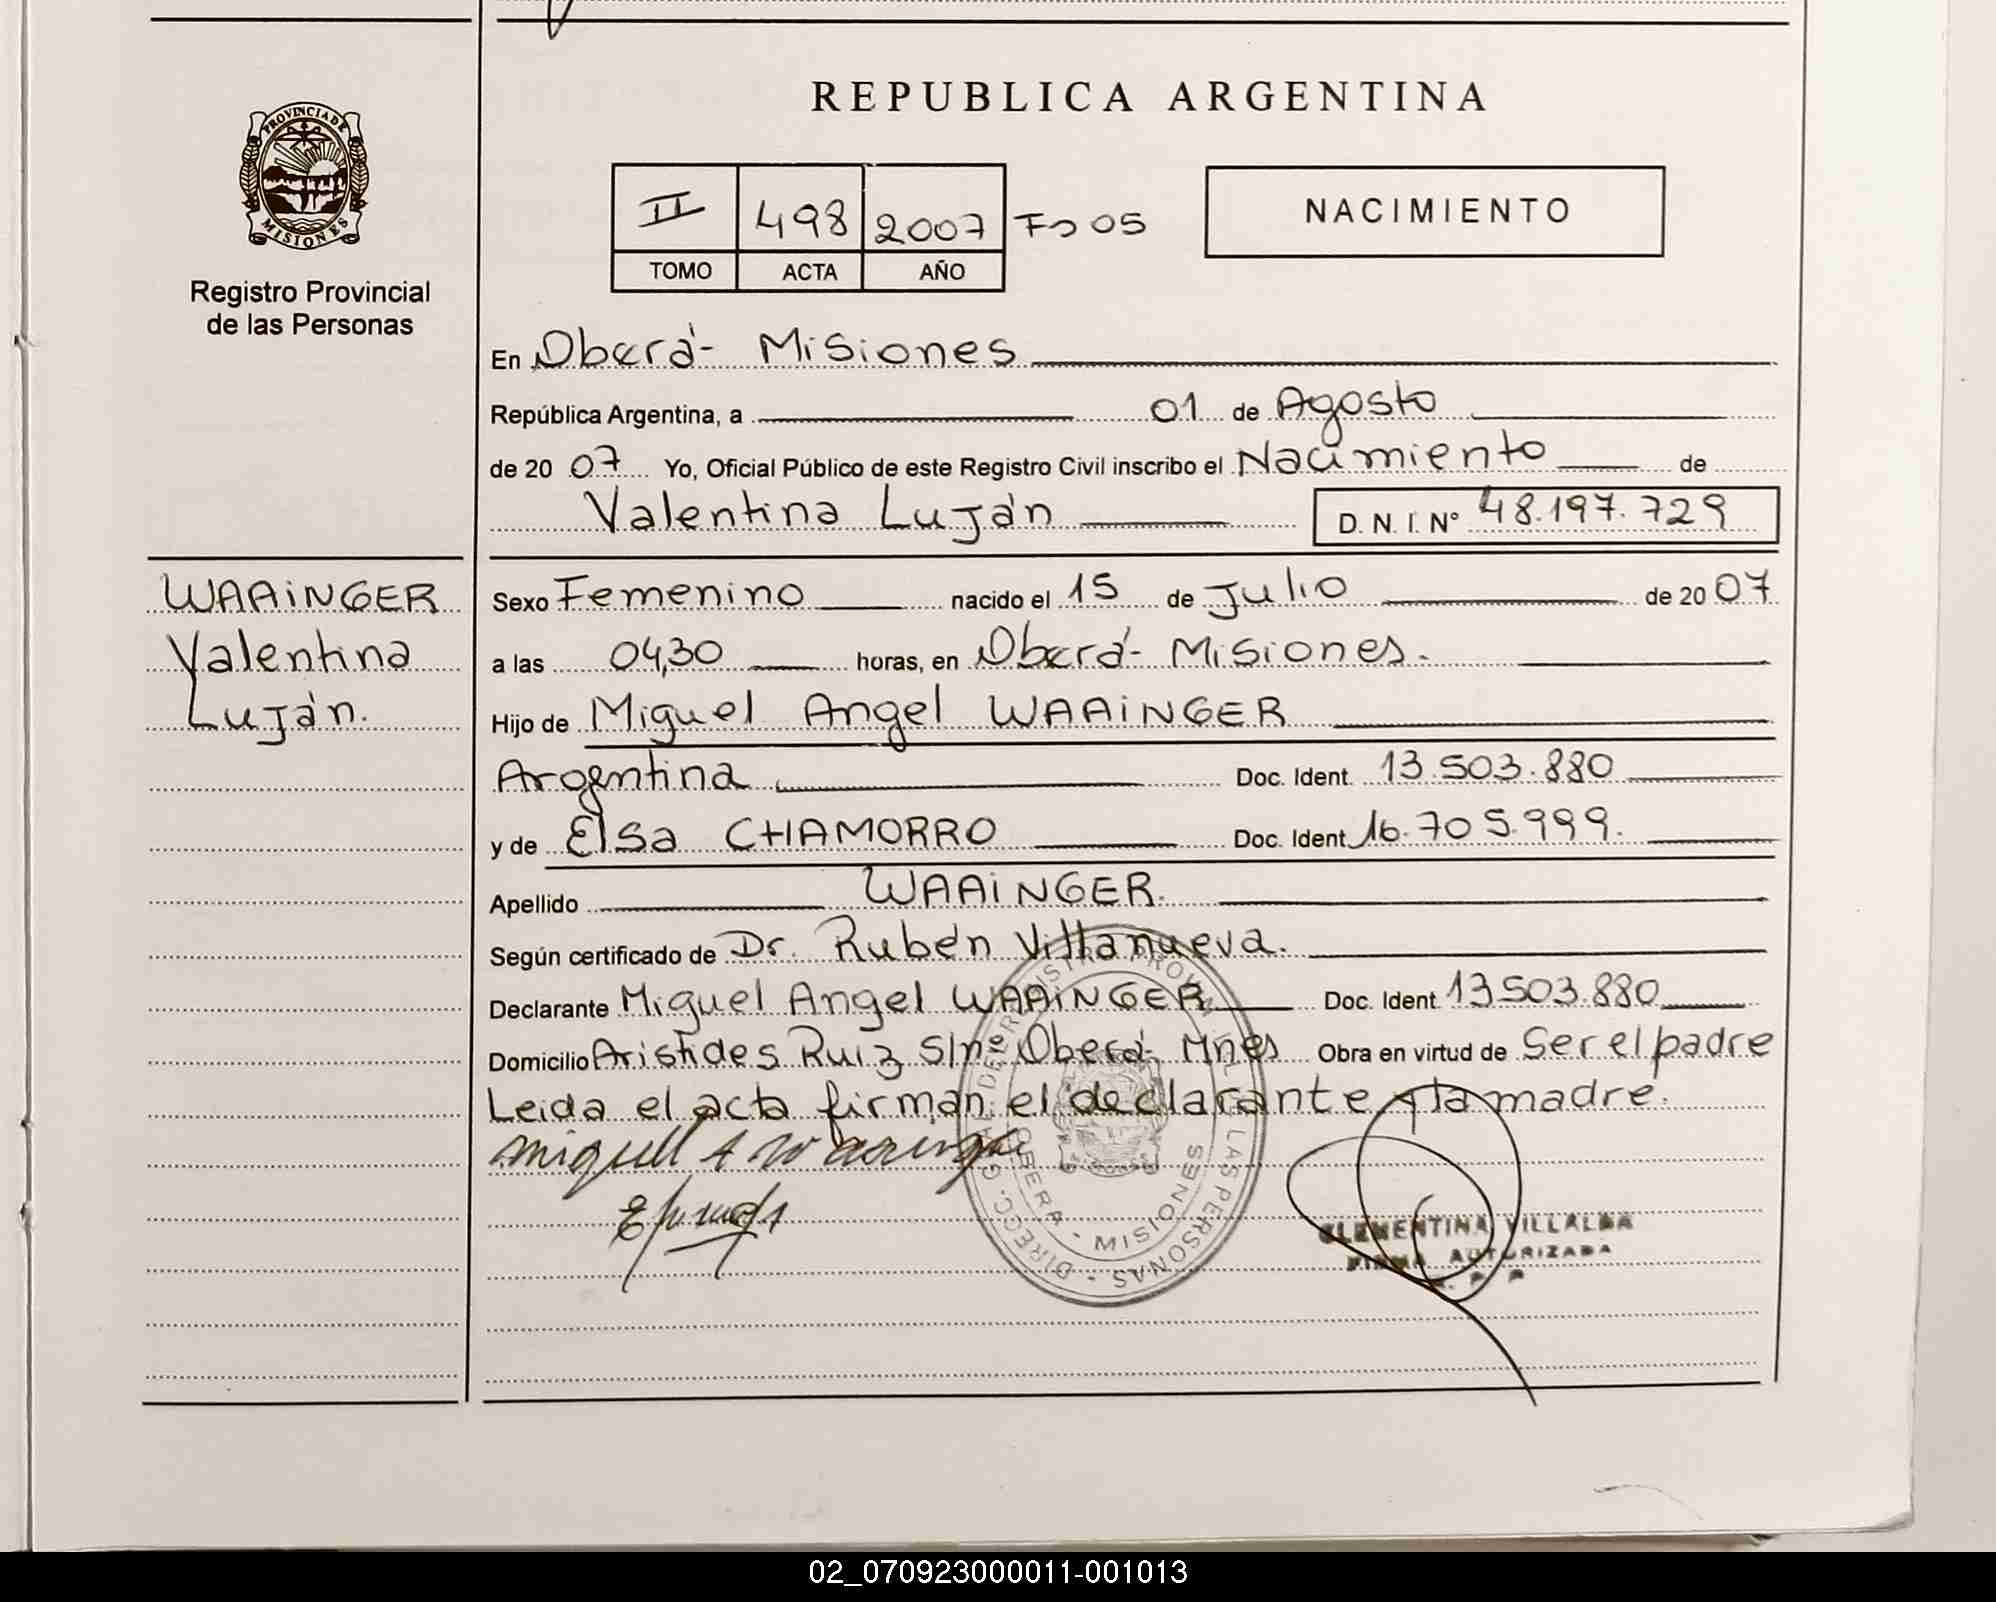 REPUBLICA ARGENTINA
PROVINCIA DE MISIONES
Registro Provincial
de las Personas
II 498 2007 Fº 05
TOMO ACTA AÑO
NACIMIENTO
En Oberá - Misiones
República Argentina, a 01 de Agosto
de 20 07 Yo, Oficial Público de este Registro Civil inscribo el Nacimiento de
Valentina Luján D. N. I. Nº 48.197.729
WAAiNGER
Valentina
Luján.
Sexo Femenino nacido el 15 de Julio de 20 07
a las 04,30 horas, en Oberá - Misiones.
Hijo de Miguel Angel WAAiNGER
Argentina Doc. Ident. 13.503.880
y de Elsa CHAMORRO Doc. Ident. 16.705.999.
Apellido WAAiNGER.
Según certificado de Dr. Rubén Villanueva.
Declarante Miguel Angel WAAiNGER Doc. Ident. 13503.880
Domicilio Aristides Ruiz S/nº Oberá - Mnes Obra en virtud de Ser el padre
Leida el acta firman el declarante y la madre.
Miguel A Waainger
DIRECC. GRAL. DE REGISTRO PROVINCIAL DE LAS PERSONAS
OBERA - MISIONES
CLEMENTINA VILLALBA
FIRMA AUTORIZADA
02_070923000011-001013